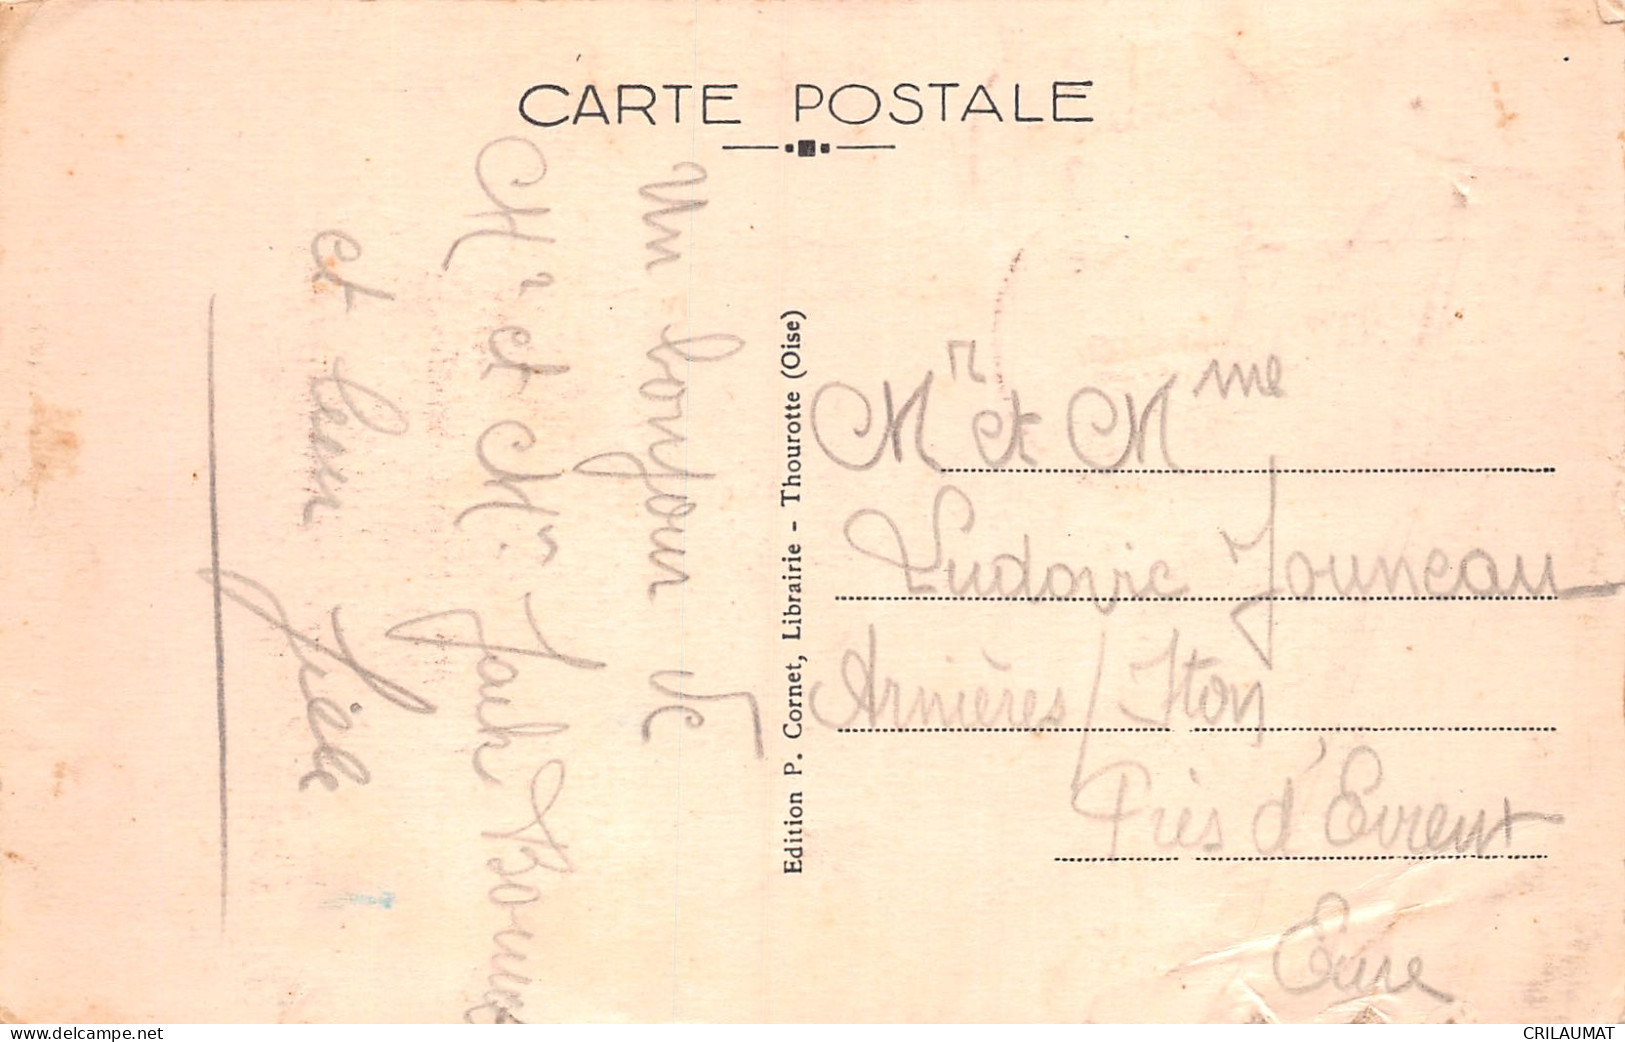 CARTE POSTALE
Un bonjour de
Mr et Mme
et leur
Edition P. Cornet, Librairie - Thourotte (Oise)
Mr et Mme
Ludovic Jouneau
Arnières / Iton
Près d'Evreux
Eure
www.delcampe.net
CRILAUMAT